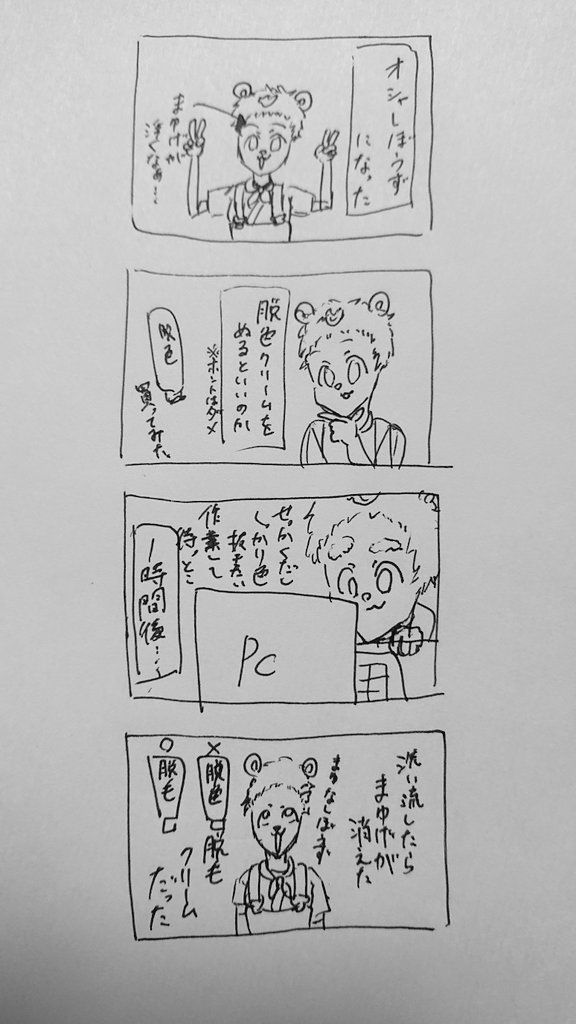 オシャレぼうず
になった
まゆげが
浮くなぁ…
脱色クリームを
ぬるといいのか
※ホントはダメ
脱色
買ってみた
せっかくだし
しっかり色
抜きたい
作業して
待っとこ
PC
一時間後…
洗い流したら
まゆげが
消えた
まゆなしぼうず
×
脱色
○
脱毛
脱毛
クリーム
だった